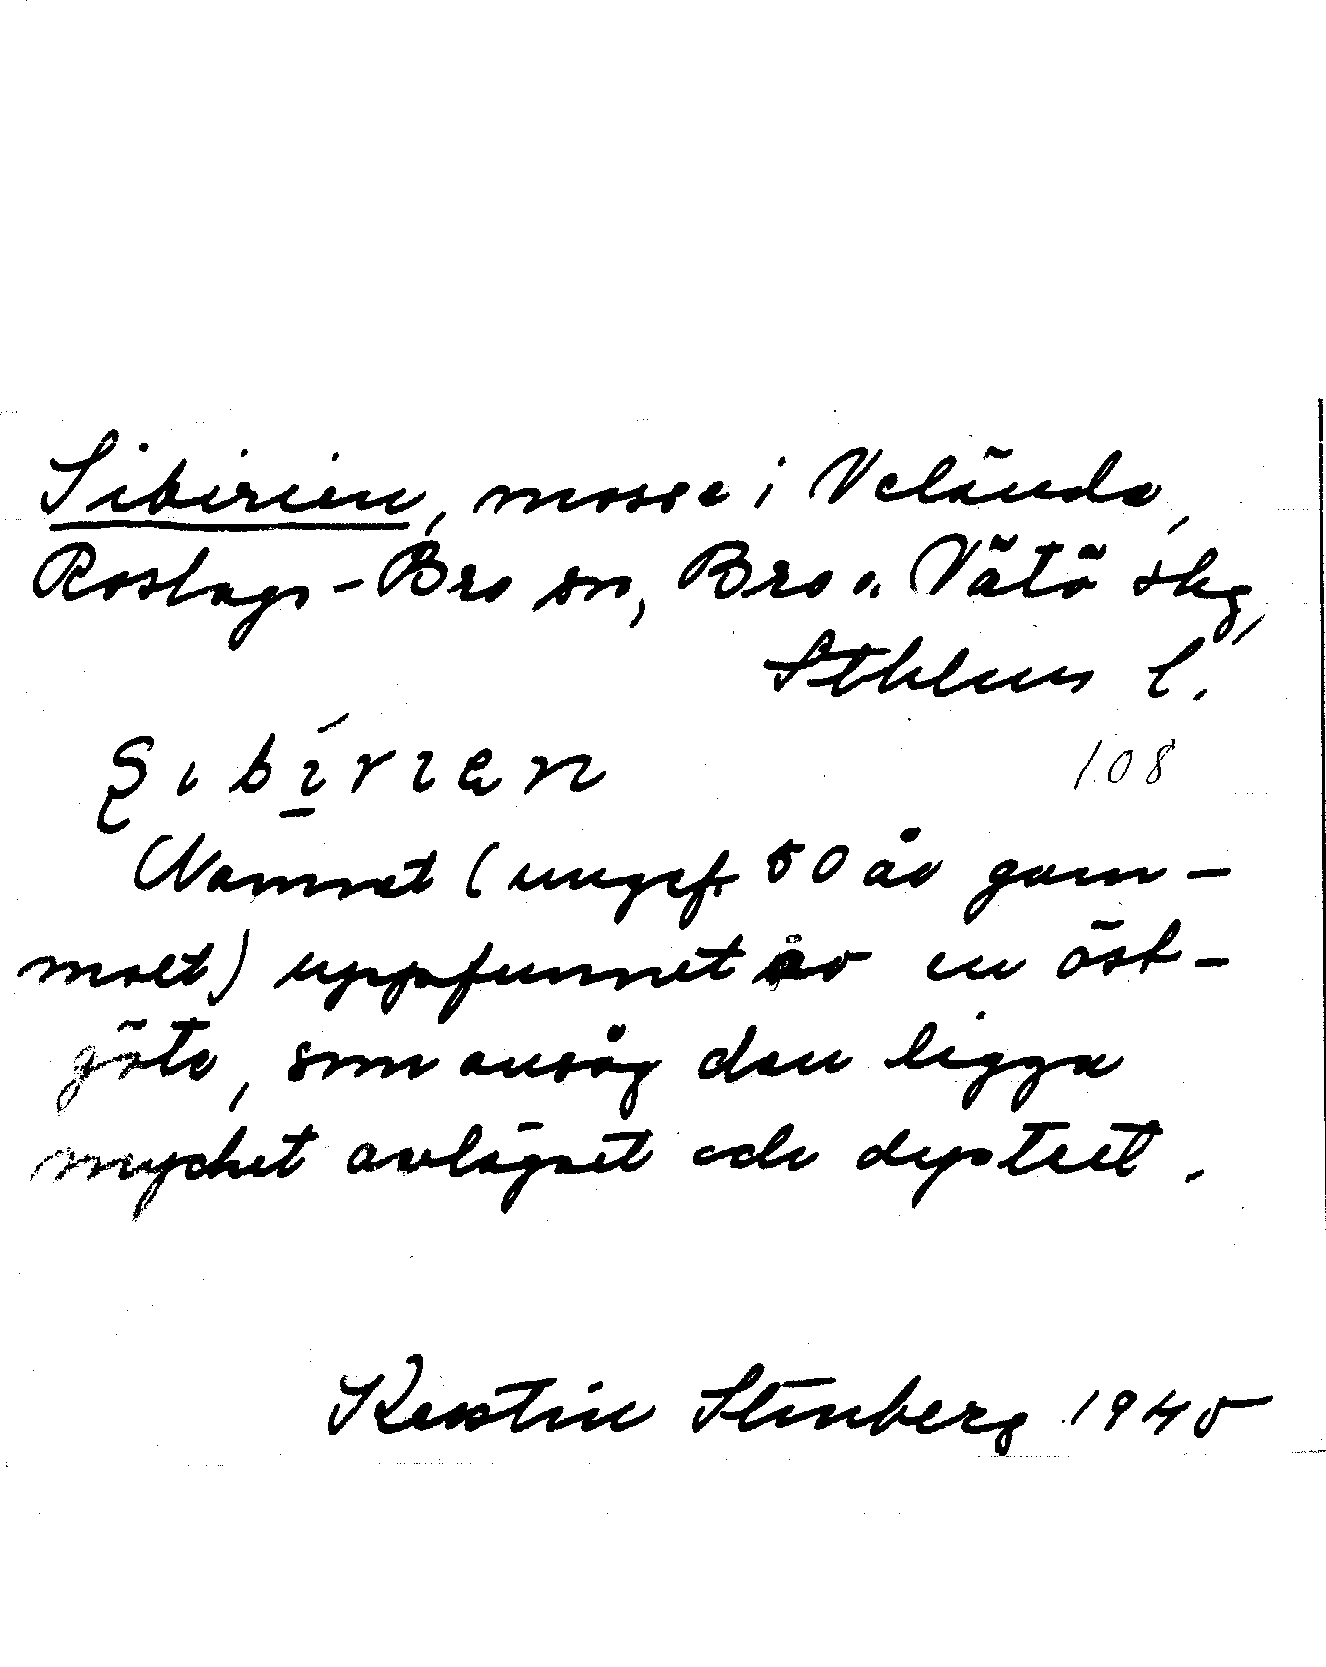 Sibirien, mosse i Velända,
Roslags-Bro sn, Bro o. Vätö skg,
Sthlms l.
Sibírien 108
Namnet (ungef. 50 år gam-
malt) uppfunnet av en öst-
göte, som ansåg den ligga
mycket avlägset och dystert.
Kerstin Stenberg 1945